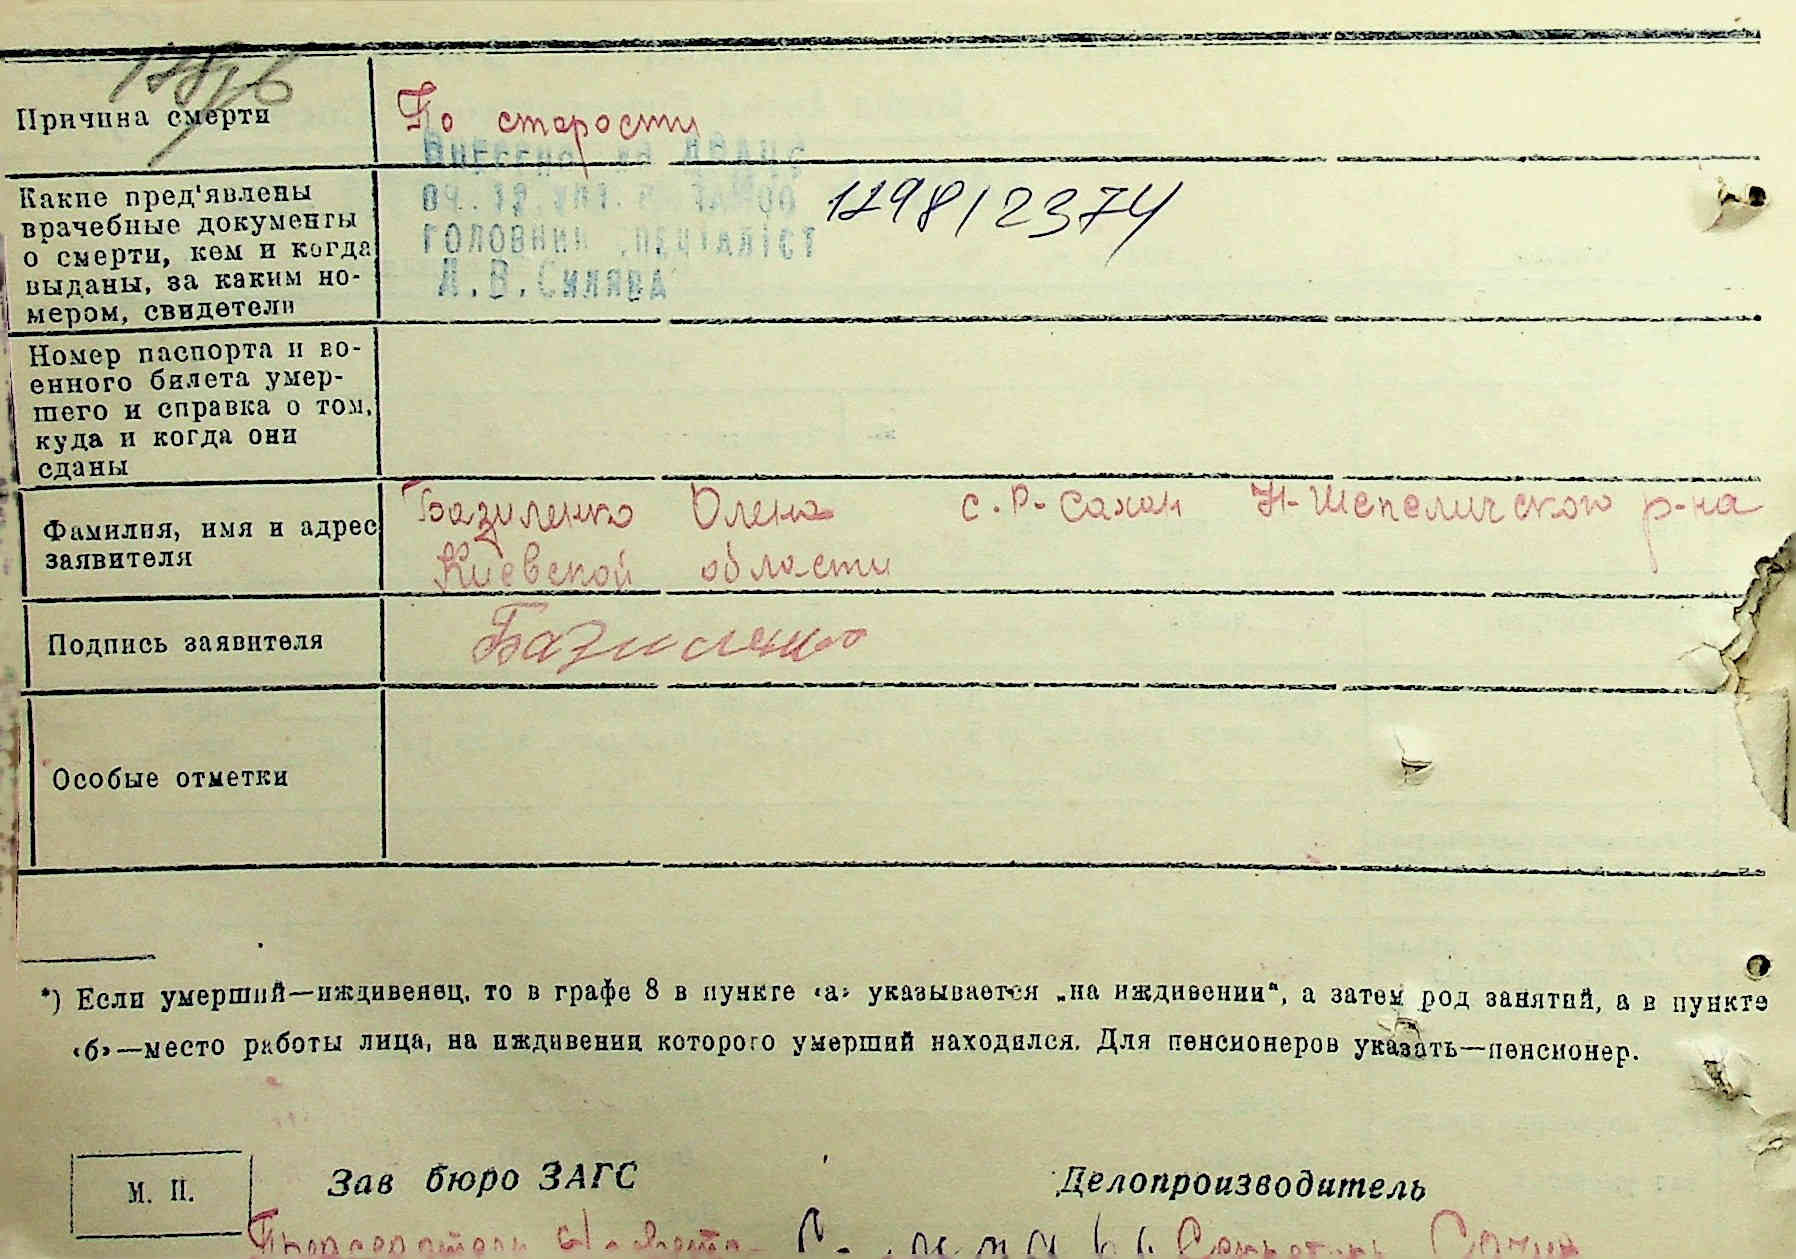 Причина смерти
По старости
Внесено до ДРАЦС
Какие пред'явлены
врачебные документы
о смерти, кем и когда
выданы, за каким но-
мером, свидетели
1298/2374
головний спеціаліст
Номер паспорта и во-
енного билета умер-
шего и справка о том,
куда и когда они
сданы
Фамилия, имя и адрес
заявителя
Базиленко Олена с. Р-Сахан Н-Шепеличского р-на
Киевской области
Подпись заявителя
Базиленко
Особые отметки
*) Если умерший—иждивенец, то в графе 8 в пункте «а» указывается „на иждивении“, а затем род занятий, а в пункте
«б»—место работы лица, на иждивении которого умерший находился. Для пенсионеров указать—пенсионер.
М. П.
Зав бюро ЗАГС
Делопроизводитель
Секретарь